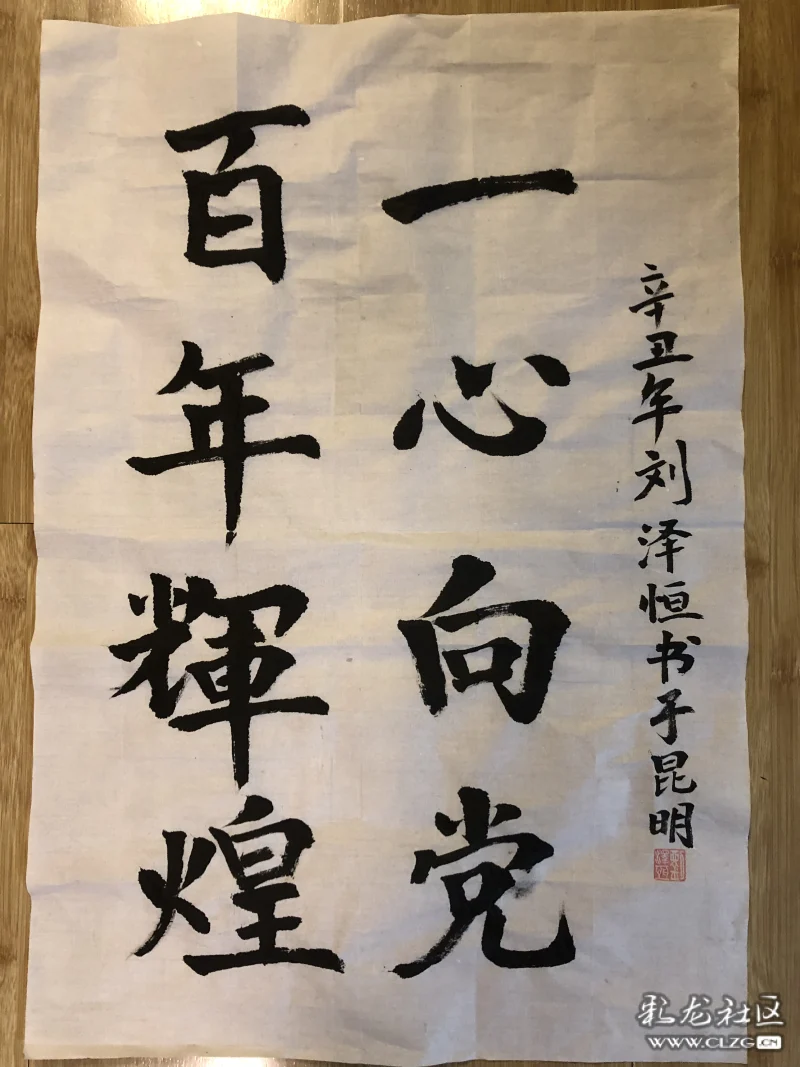 百年輝煌
一心向党
辛丑年刘泽恒书于昆明
彩龙社区
www.CLZG.CN